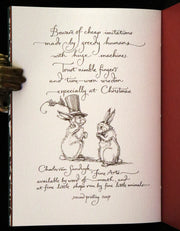 Beware of cheap imitations
made by greedy humans
with huge machines.
Trust nimble fingers
and time-worn wisdom
especially at Christmas.
Charles van Sandwyk Fine Arts
available by word of mouth, and
at fine little shops run by fine little animals.